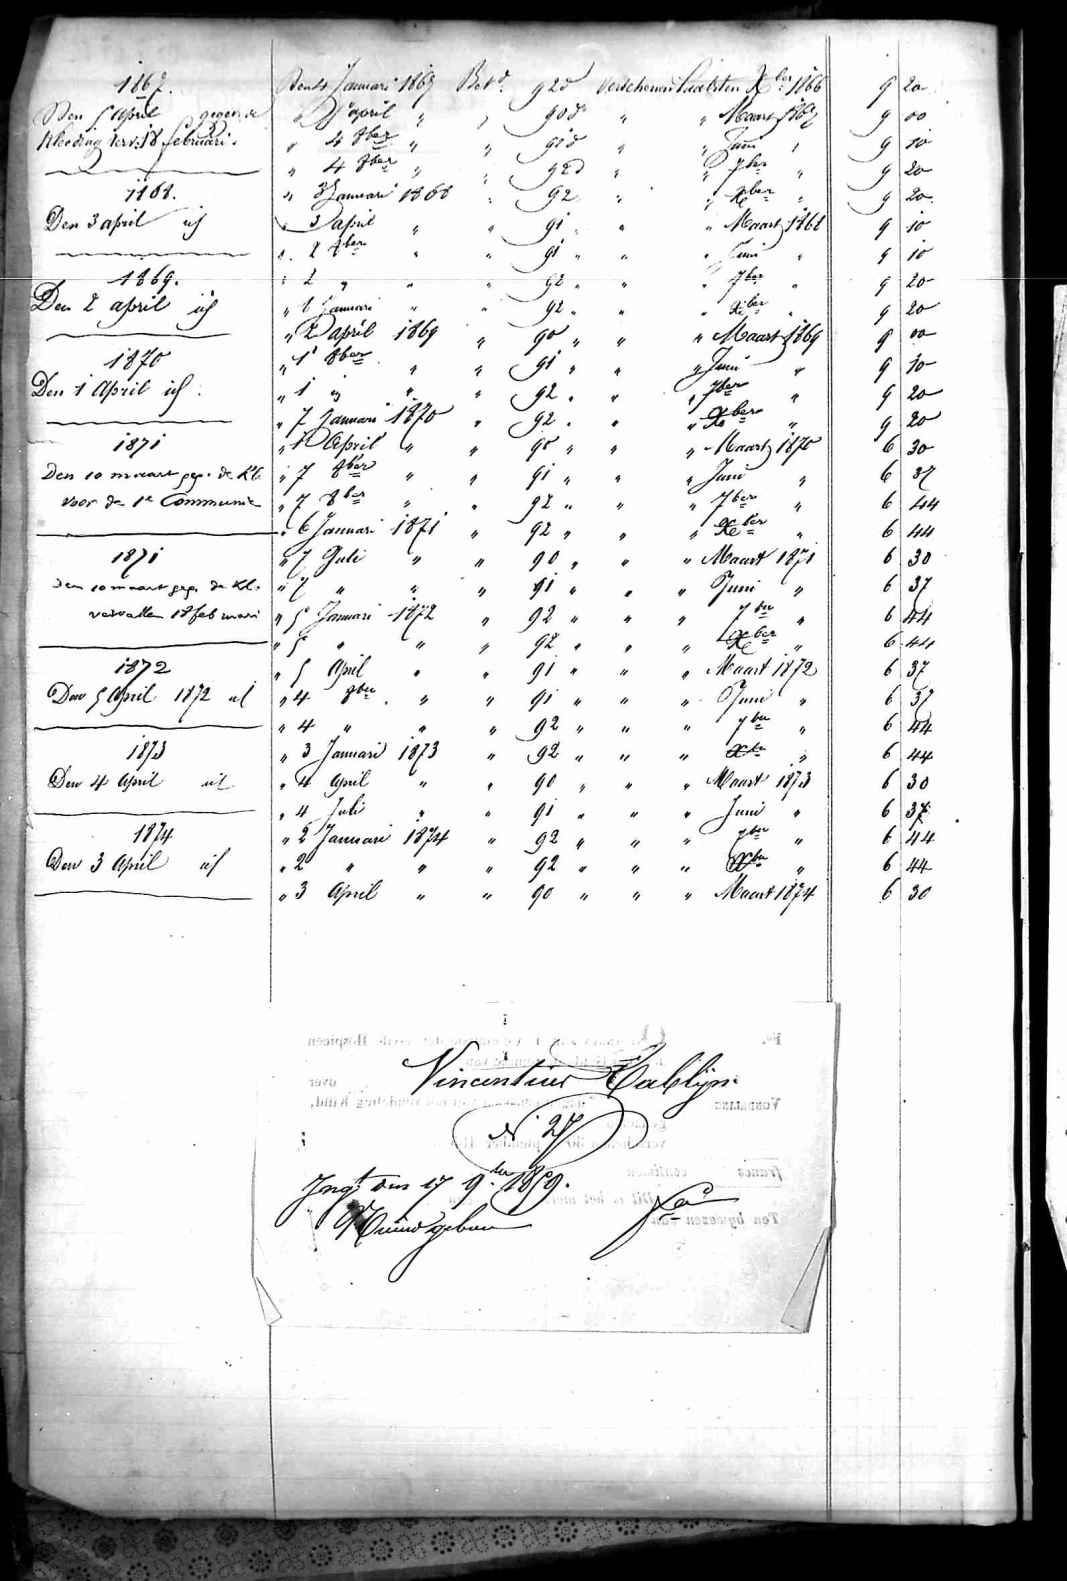 1867.
Den 5 April gegeven de
Kleeding verv. 18 februari.
1868.
Den 3 april id
1869.
Den 2 april id
1870
Den 1 April id.
1871
Den 10 maart geg. de Kl.
voor de 1e Communie
1871
den 10 maart geg. de Kl.
vervallen 18 februari
1872
Den 5 April 1872 id
1873
Den 4 April id
1874
Den 3 April id
Den 4 Januari 1867 Bet.d 92 d verschenen laatsten Xber 1866 9 20
" april " " 90 d " " Maart 1867 9 00
" 4 8ber " " 91 d " " Juni " 9 10
" 4 8ber " " 92 d " " 7ber " 9 20
" 3 Januari 1868 " 92 " " Xber " 9 20
" 3 april " " 91 " " Maart 1868 9 10
" 2 8ber " " 91 " " Juni " 9 10
" 2 " " " 92 " " 7ber " 9 20
" 1 Januari " " 92 " " Xber " 9 20
" 2 april 1869 " 90 " " Maart 1869 9 00
" 1 8ber " " 91 " " Juni " 9 10
" 1 " " " 92 " " 7ber " 9 20
" 7 Januari 1870 " 92 " " Xber " 9 20
" 1 April " " 90 " " Maart 1870 6 30
" 7 8ber " " 91 " " Juni " 6 37
" 7 8ber " " 92 " " 7ber " 6 44
" 6 Januari 1871 " 92 " " Xber " 6 44
" 7 Juli " " 90 " " Maart 1871 6 30
" 7 " " " 91 " " Juni " 6 37
" 5 Januari 1872 " 92 " " 7ber " 6 44
" 5 " " " 92 " " Xber " 6 44
" 5 April " " 91 " " Maart 1872 6 37
" 4 8ber " " 91 " " Juni " 6 37
" 4 " " " 92 " " 7ber " 6 44
" 3 Januari 1873 " 92 " " Xber " 6 44
" 4 April " " 90 " " Maart 1873 6 30
" 4 Juli " " 91 " " Juni " 6 37
" 2 Januari 1874 " 92 " " 7ber " 6 44
" 2 " " " 92 " " Xber " 6 44
" 3 April " " 90 " " Maart 1874 6 30
Vincentius
N° 27
Ingt den 17 9ber 1859.